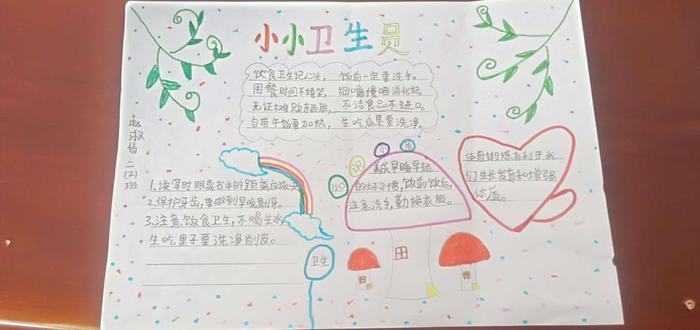 小小卫生员
饮食卫生记心头，饭前一定要洗手。
用餐时间不嬉笑，细嚼慢咽消化好。
无证摊贩东西脏，不洁食品不进口。
自带午饭要加热，生吃瓜果要洗净。
赵淑
二(2)班
1.读写时眼离书本的距离应该
2.保护牙齿，要做到早晚刷牙。
3.注意饮食卫生，不喝生水
生吃果子要洗净削皮。
小知识
养成早睡早起
的好习惯，饭前饭后，
注意洗手，勤换衣服。
体育锻炼有利于我
们生长发育和增强
体质。
卫生